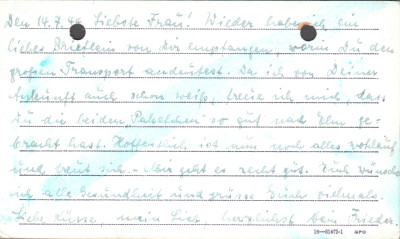 Den 14.7.44. Liebste Frau! Wieder habe ich ein
liebes Brieflein von Dir empfangen, worin Du den
großen Transport andeutest. Da ich von Deiner
Ankunft auch schon weiß, freue ich mich, dass
Du die beiden so gut nach Ulm ge-
bracht hast. Hoffentlich ist nun noch alles wohlauf
und freut sich. - Mir geht es recht gut. Ich wünsche
euch alle Gesundheit und grüsse Euch vielmals.
Liebe Küsse, mein Lieb, herzlichst Dein Frieder.
16-31473-1 GPO